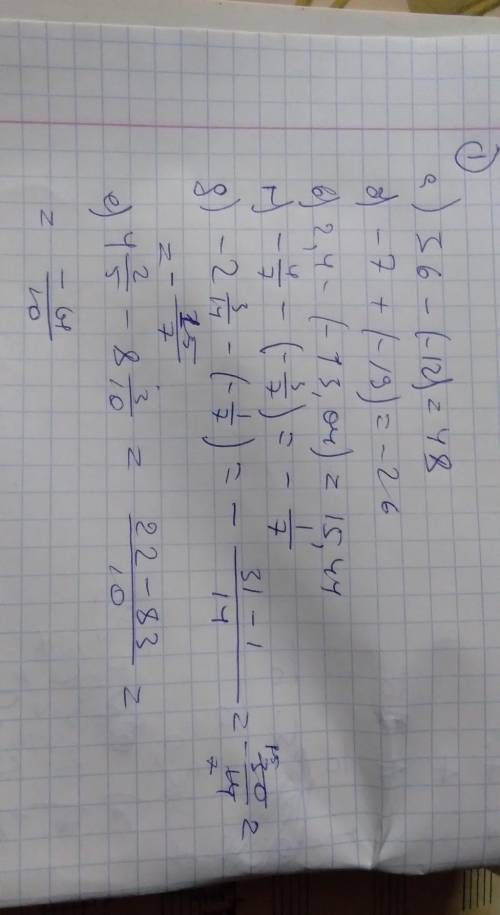 ①
а) 36 - (-12) = 48
б) -7 + (-19) = -26
в) 2,4 - (-13,04) = 15,44
г) -4/7 - (-3/7) = -1/7
д) -2 3/14 - (-1/7) = - (31 - 1)/14 = - 30/14 =
15
7
= - 15/7
е) 4 2/5 - 8 3/10 = (22 - 83)/10 =
= -61/10